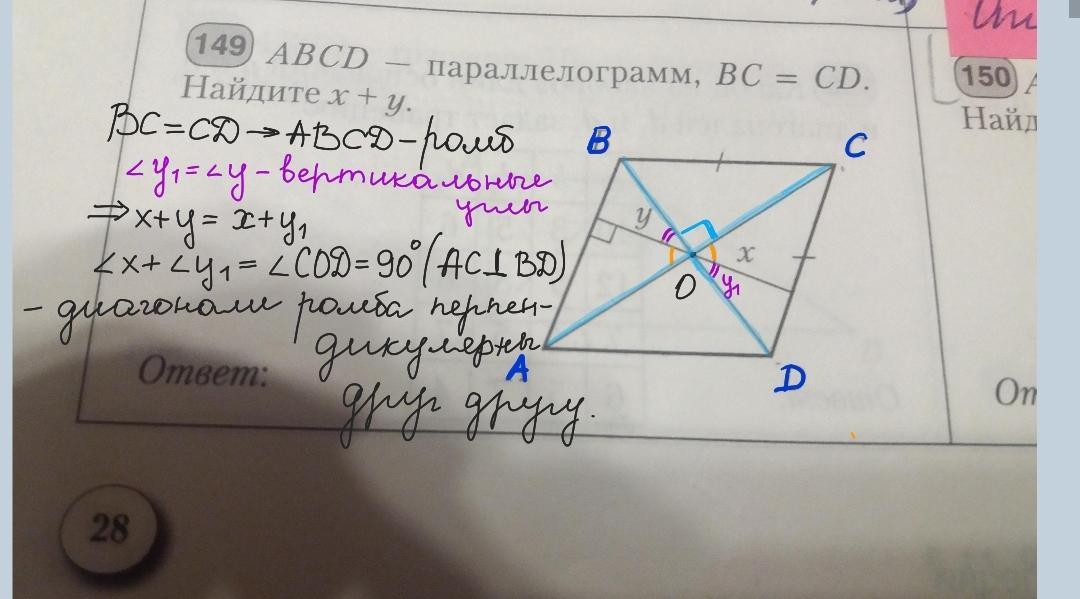 149 ABCD — параллелограмм, BC = CD.
Найдите x + y.
BC=CD→ABCD-ромб
∠y₁=∠y-вертикальные
углы
⇒x+y= x+y₁
∠x+∠y₁=∠COD=90°(AC⊥BD)
- диагонали ромба перпен-
дикулярны
друг другу.
Ответ:
B
C
y
x
O
y₁
A
D
150
Найд
От
28